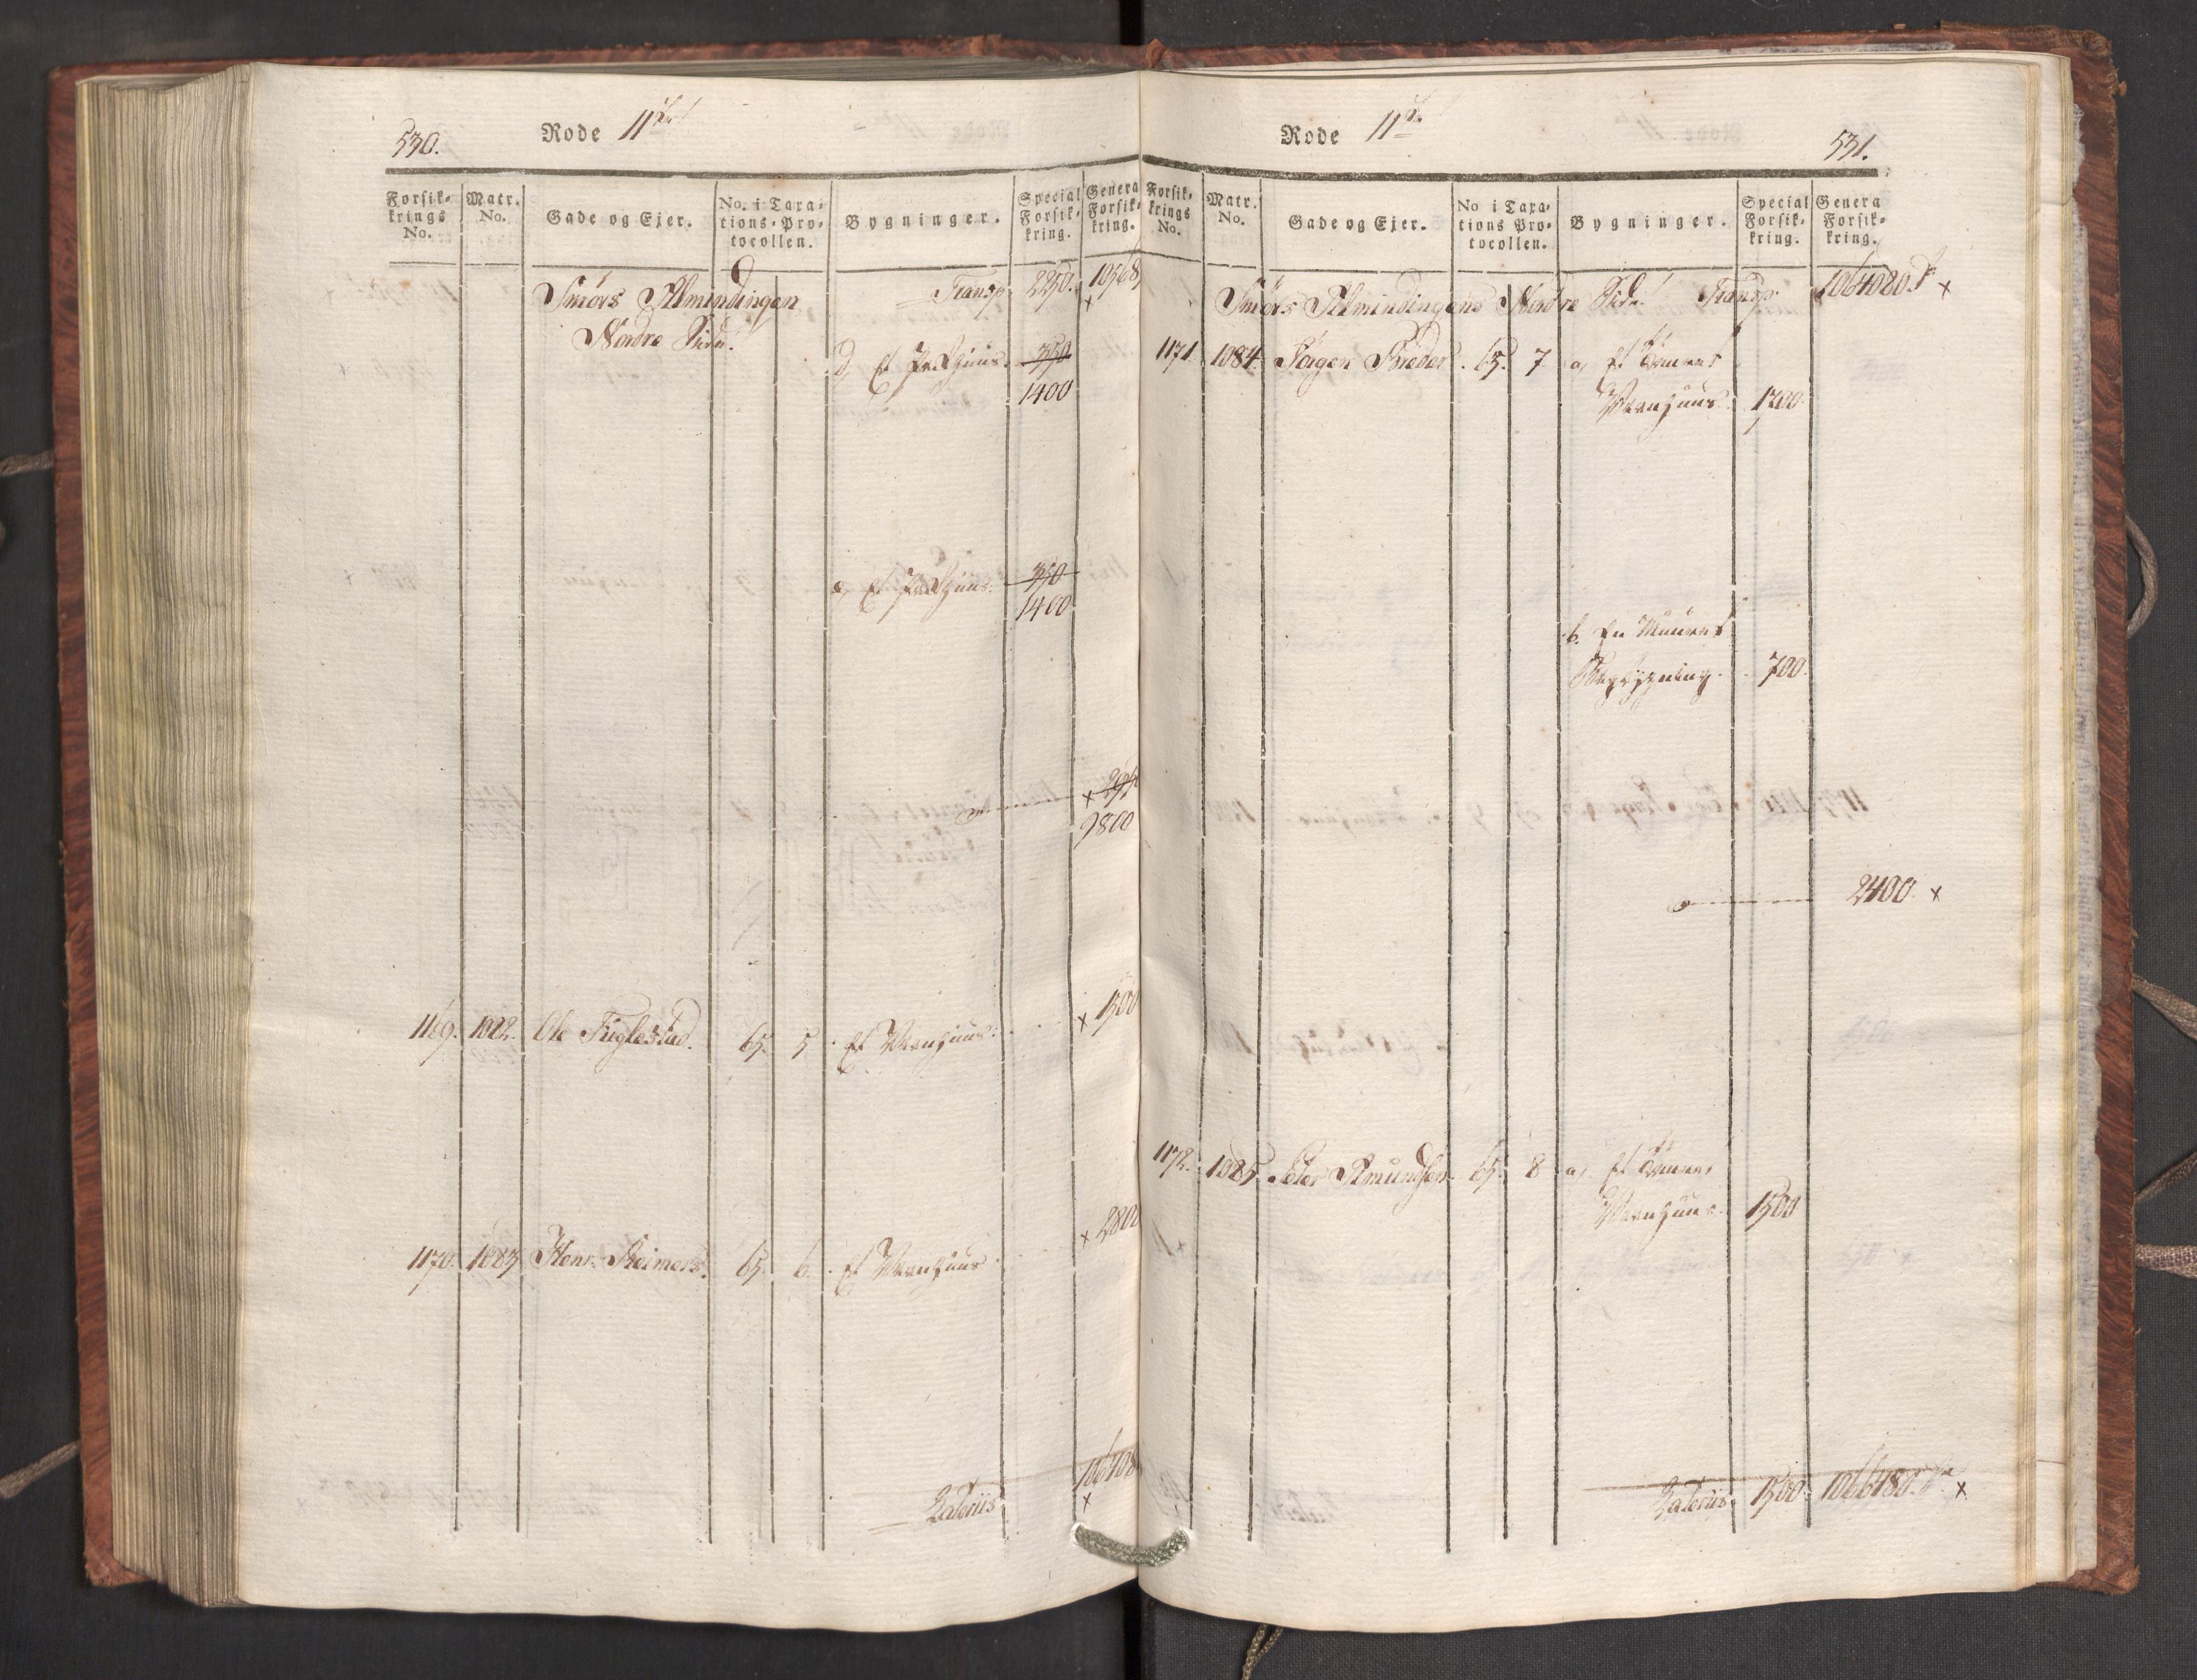 530.
Rode 11te
Forsik-
krings
No.
Matr.
No.
Gade og Ejer.
No. i Taxa-
tions-Pro-
tocollen.
Bygninger.
Special
Forsik-
kring.
Genera
Forsik-
kring.
Smörs Almindingen Transp 2250. 10568
Nordre Side.
d, Et Pakhuus. 350
1400
e, Et Pakhuus. 350
1400
2800
1169. 1082. Ole Fuglestad. 65. 5 Et Vaanhuus. 1500
1170. 1083 Henr. Reimers. 65. 6. Et Vaanhuus 2800
Lateriis 106408
Rode 11te
531.
Forsik-
krings
No.
Matr.
No.
Gade og Ejer.
No i Taxa-
tions Pro-
tocollen.
Bygninger.
Special
Forsik-
kring.
Genera
Forsik-
kring.
Smörs Almindingens Nordre Side Transp. 1064080
1171 1084. Jörgen 65. 7 a, Et
Vaanhuus. 1700.
b. En Muuret
700.
2400.
1172. 1085. Peder Amundsen 65. 8 a, Et
Vaanhuus. 1500
Lateriis 1500. 1066480.